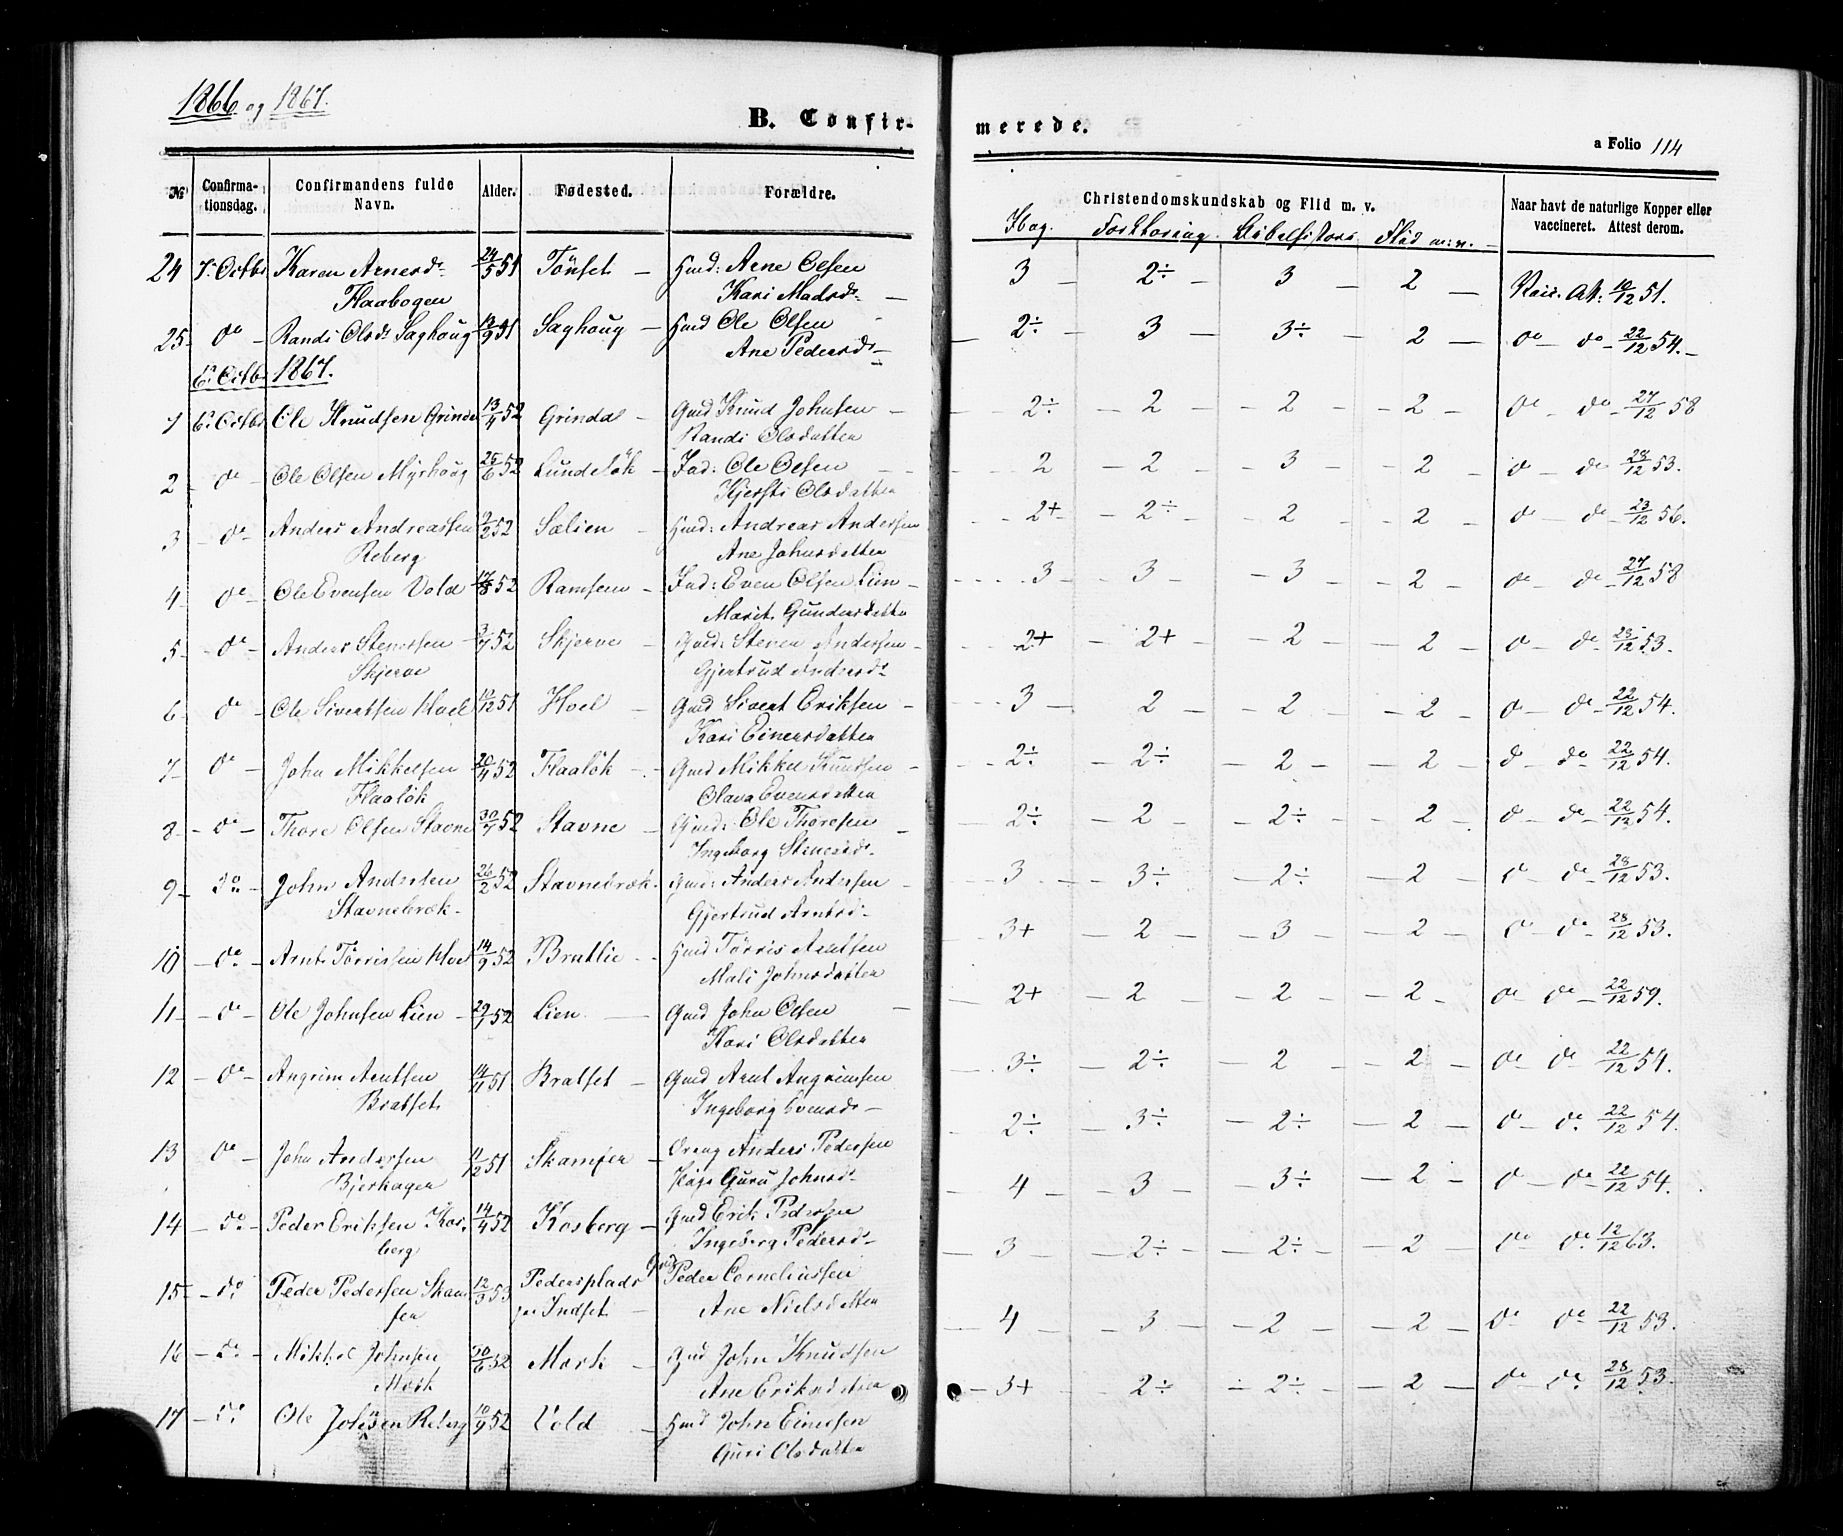 1866 og 1867.
B. Confirmerede.
a Folio 114
№ Confirmationsdag. Confirmandens fulde Navn. Alder. Fødested. Forældre. Christendomskundskab og Flid m. v. Naar havt de naturlige Kopper eller vaccineret. Attest derom.
Hog. Forklaring. Bibelhistorie Flid m.v.
24 7de Octbr Karen Arnesdr 24/5 51 Tönset Gmd: Arne Olsen 3 2÷ 3 2 Vacc. At. 10/12 51.
Flaabogen Kari Madsdr
25 do Randi Olsdr Saghoug 13/9 51 Saghoug Hmd Ole Olsen 2÷ 3 3÷ 2 do do 22/12 54.
Ane Pedersdr
6. Octb. 1867.
1 6. Octb. Ole Knudsen Grindal 13/4 52 Grindal Gmd Knud Johnsen 2÷ 2 2 2 do do 27/12 58
Randi Olsdatter
2 do Ole Olsen Myrhoug 25/6 52 Lundslök Ind: Ole Olsen 2 2 3 2 do do 28/12 53.
Kjersti Olsdatter
3 do Anders Andreassen 2/2 52 Sælien Hmd: Andreas Andersen 2+ 2÷ 2 2 do do 23/12 56.
Reberg Ane Johnsdatter
4 do Ole Evensen Vold 17/8 52 Ramsem Ind: Even Olsen Lien 3 3 3 2 do do 27/12 58
Marit Gundersdatter
5 do Anders Stenersen 3/7 52 Skjerve Gmd: Stener Andersen 2+ 2+ 2 2 do do 23/12 53.
Skjerve Gjertrud Andersdr
6 do Ole Sivertsen Hoel 10/12 51 Hoel Gmd Sivert Eriksen 3 2 2 2 do do 22/12 54.
Kari Einersdatter
7 do John Mikkelsen 20/4 52 Flaalök Gmd Mikkel Knutsen 2÷ 2÷ 2 2 do do 22/12 54.
Flaalök Olava Evensdatter
8 do Thore Olsen Stavne 30/7 52 Stavne Gmd: Ole Thoresen 2÷ 2 2÷ 2 do do 22/12 54.
Ingeborg Stenersdr
9 do John Andersen 26/2 52 Stavnebræk Gmd: Anders Andersen 3 3÷ 2÷ 2 do do 28/12 53.
Stavnebræk. Gjertrud Arntsdr
10 do Arnt Törrissen Hoel 14/9 52 Bratlie Hmd Törris Arntsen 3+ 2 3 2 do do 28/12 53.
Mali Johnsdatter
11 do Ole Johnsen Lien 29/1 52 Lien Gmd John Olsen 2+ 2 2 2 do do 22/12 59.
Kari Olsdatter
12 do Angrim Arntsen 14/11 51 Bratset Gmd Arnt Angrimsen 3÷ 2÷ 2 2 do do 22/12 54.
Bratset Ingeborg Evensdr
13 do John Andersen 11/12 51 Skamfer Anders Pedersen 2÷ 3÷ 2÷ 2 do do 22/12 54.
Bjerhagen Guru Johnsdr
14 do Peder Eriksen Kos- 14/4 52 Kosberg Gmd Erik Pedersen 4 3 3÷ 2 do do 22/12 54.
berg Ingeborg Pedersdr
15 do Peder Pedersen Skam- 12/3 53 Pedersplads Gmd Peder Corneliussen 3 2÷ 2÷ 2 do do 12/12 63.
fer Indset Ane Nielsdatter
16 do Mikkel Johnsen 30/6 52 Mærk Gmd John Knudsen 4 3 2 2 do do 22/12 53.
Mærk Ane Eriksdatter
17 do Ole Johnsen Reberg 10/9 52 Vold Hmd John Einersen 3+ 2÷ 2÷ 2 do do 28/12 53.
Guri Olsdatter